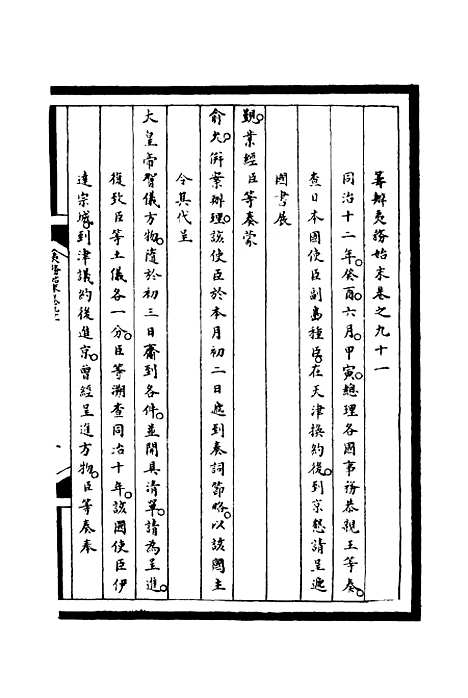 籌辦夷務始末卷之九十一
同治十二年。癸酉。六月。甲寅。總理各國事務恭親王等奏。
查日本國使臣副島種臣。在天津換約後。到京懇請呈遞
國書展
覲。業經臣等奏蒙
俞允。併案辦理。該使臣於本月初二日遞到奏詞節略。以該國主
令其代呈
大皇帝賀儀方物。隨於初三日齎到各件。並開具清單。請為呈進。
復致臣等土儀各一分。臣等溯查同治十年。該國使臣伊
達宗城。到津議約後進京。曾經呈進方物。臣等奏奉
夷務始末卷九十一